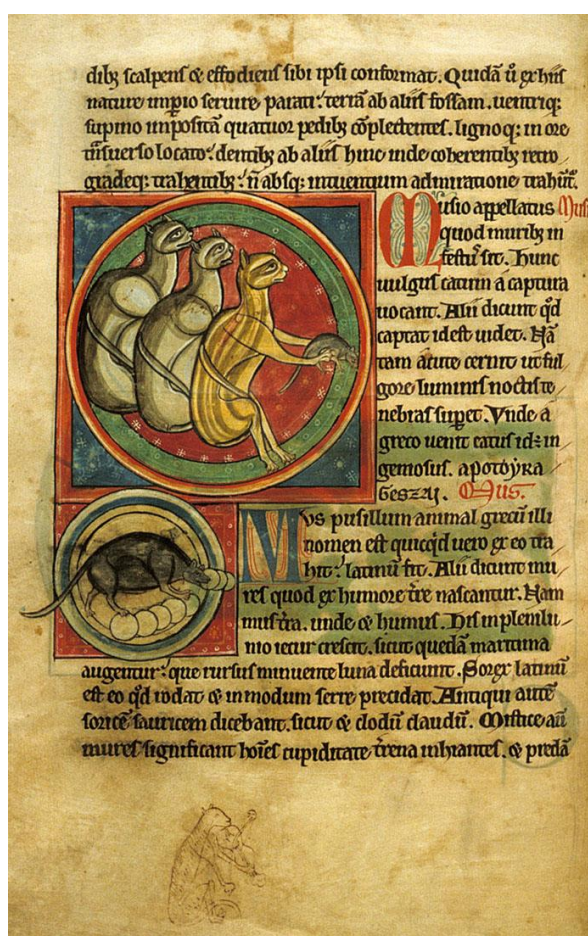 dib; scalpens & effodiens sibi ipsi conformat. Quidā ů ex hiis
nature impio seruire parati: terrā ab aliis fossam. uentriq;
supino impositā quatuor pedib; cōplectentes. lignoq; in ore
tnsuerso locato: dentib; ab aliis hinc inde coherentib; retro
gradeq; trahentib;: n̄ absq; intuentium admiratione trahūt.
Musio appellatus Musi
quod murib; in
festus sit. Hunc
uulgus catum a captura
uocant. Alii dicunt qd
captat idest uidet. Nā
tam acute cernit ut ful
gore luminis noctis te
nebras supet. Vnde a
greco uenit catus id: in
geniosus. apotoyka
Geszai. Mus.
Mvs pusillum animal grecū illi
nomen est quicqd uero ex eo tra
hit: latinū fit. Alii dicunt mu
res quod ex humore tre nascantur. Nam
mus tra. unde & humus. His in plenilu
nio iecur crescit. sicut quedā maritima
augentur: que rursus minuente luna deficiunt. Sorex latinū
est eo qd rodat & in modum serre precidat. Antiqui autē
soricē sauricem dicebant. sicut & clodū claudū. Mistice aū
mures significant hoīes cupiditate trena inhiantes. & predā